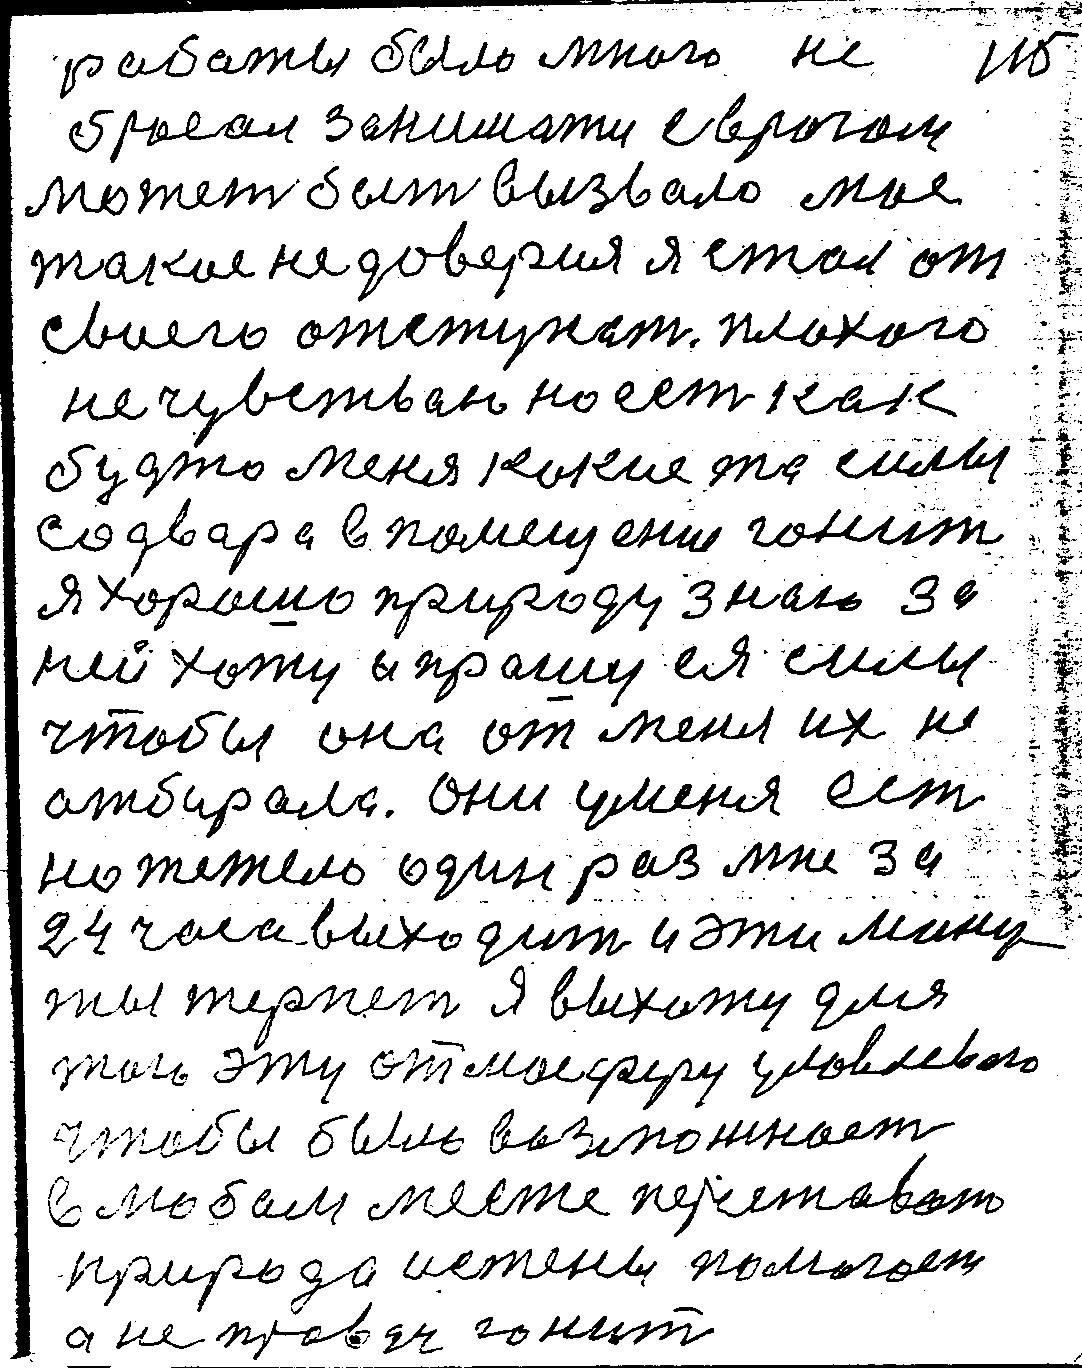 рабаты было много не 115
бросал занимати с врогом
может быт вызвало мое
такое не доверия я стал от
своего отступат. плохого
не чувстваю но ест как
будто меня кокие та силы
со двара в помещение гонит
я хорошо природу знаю за
ней хожу и прашу ея силы
чтобы она от меня их не
отбирала. они у меня ест
но тежело один раз мне за
24 часа выходит и эти мину
ты терпет я выхожу для
того эту отмосферу уловлеваю
чтобы было возможност
в любом месте перестават
природа истены помогает
а не правду гонит